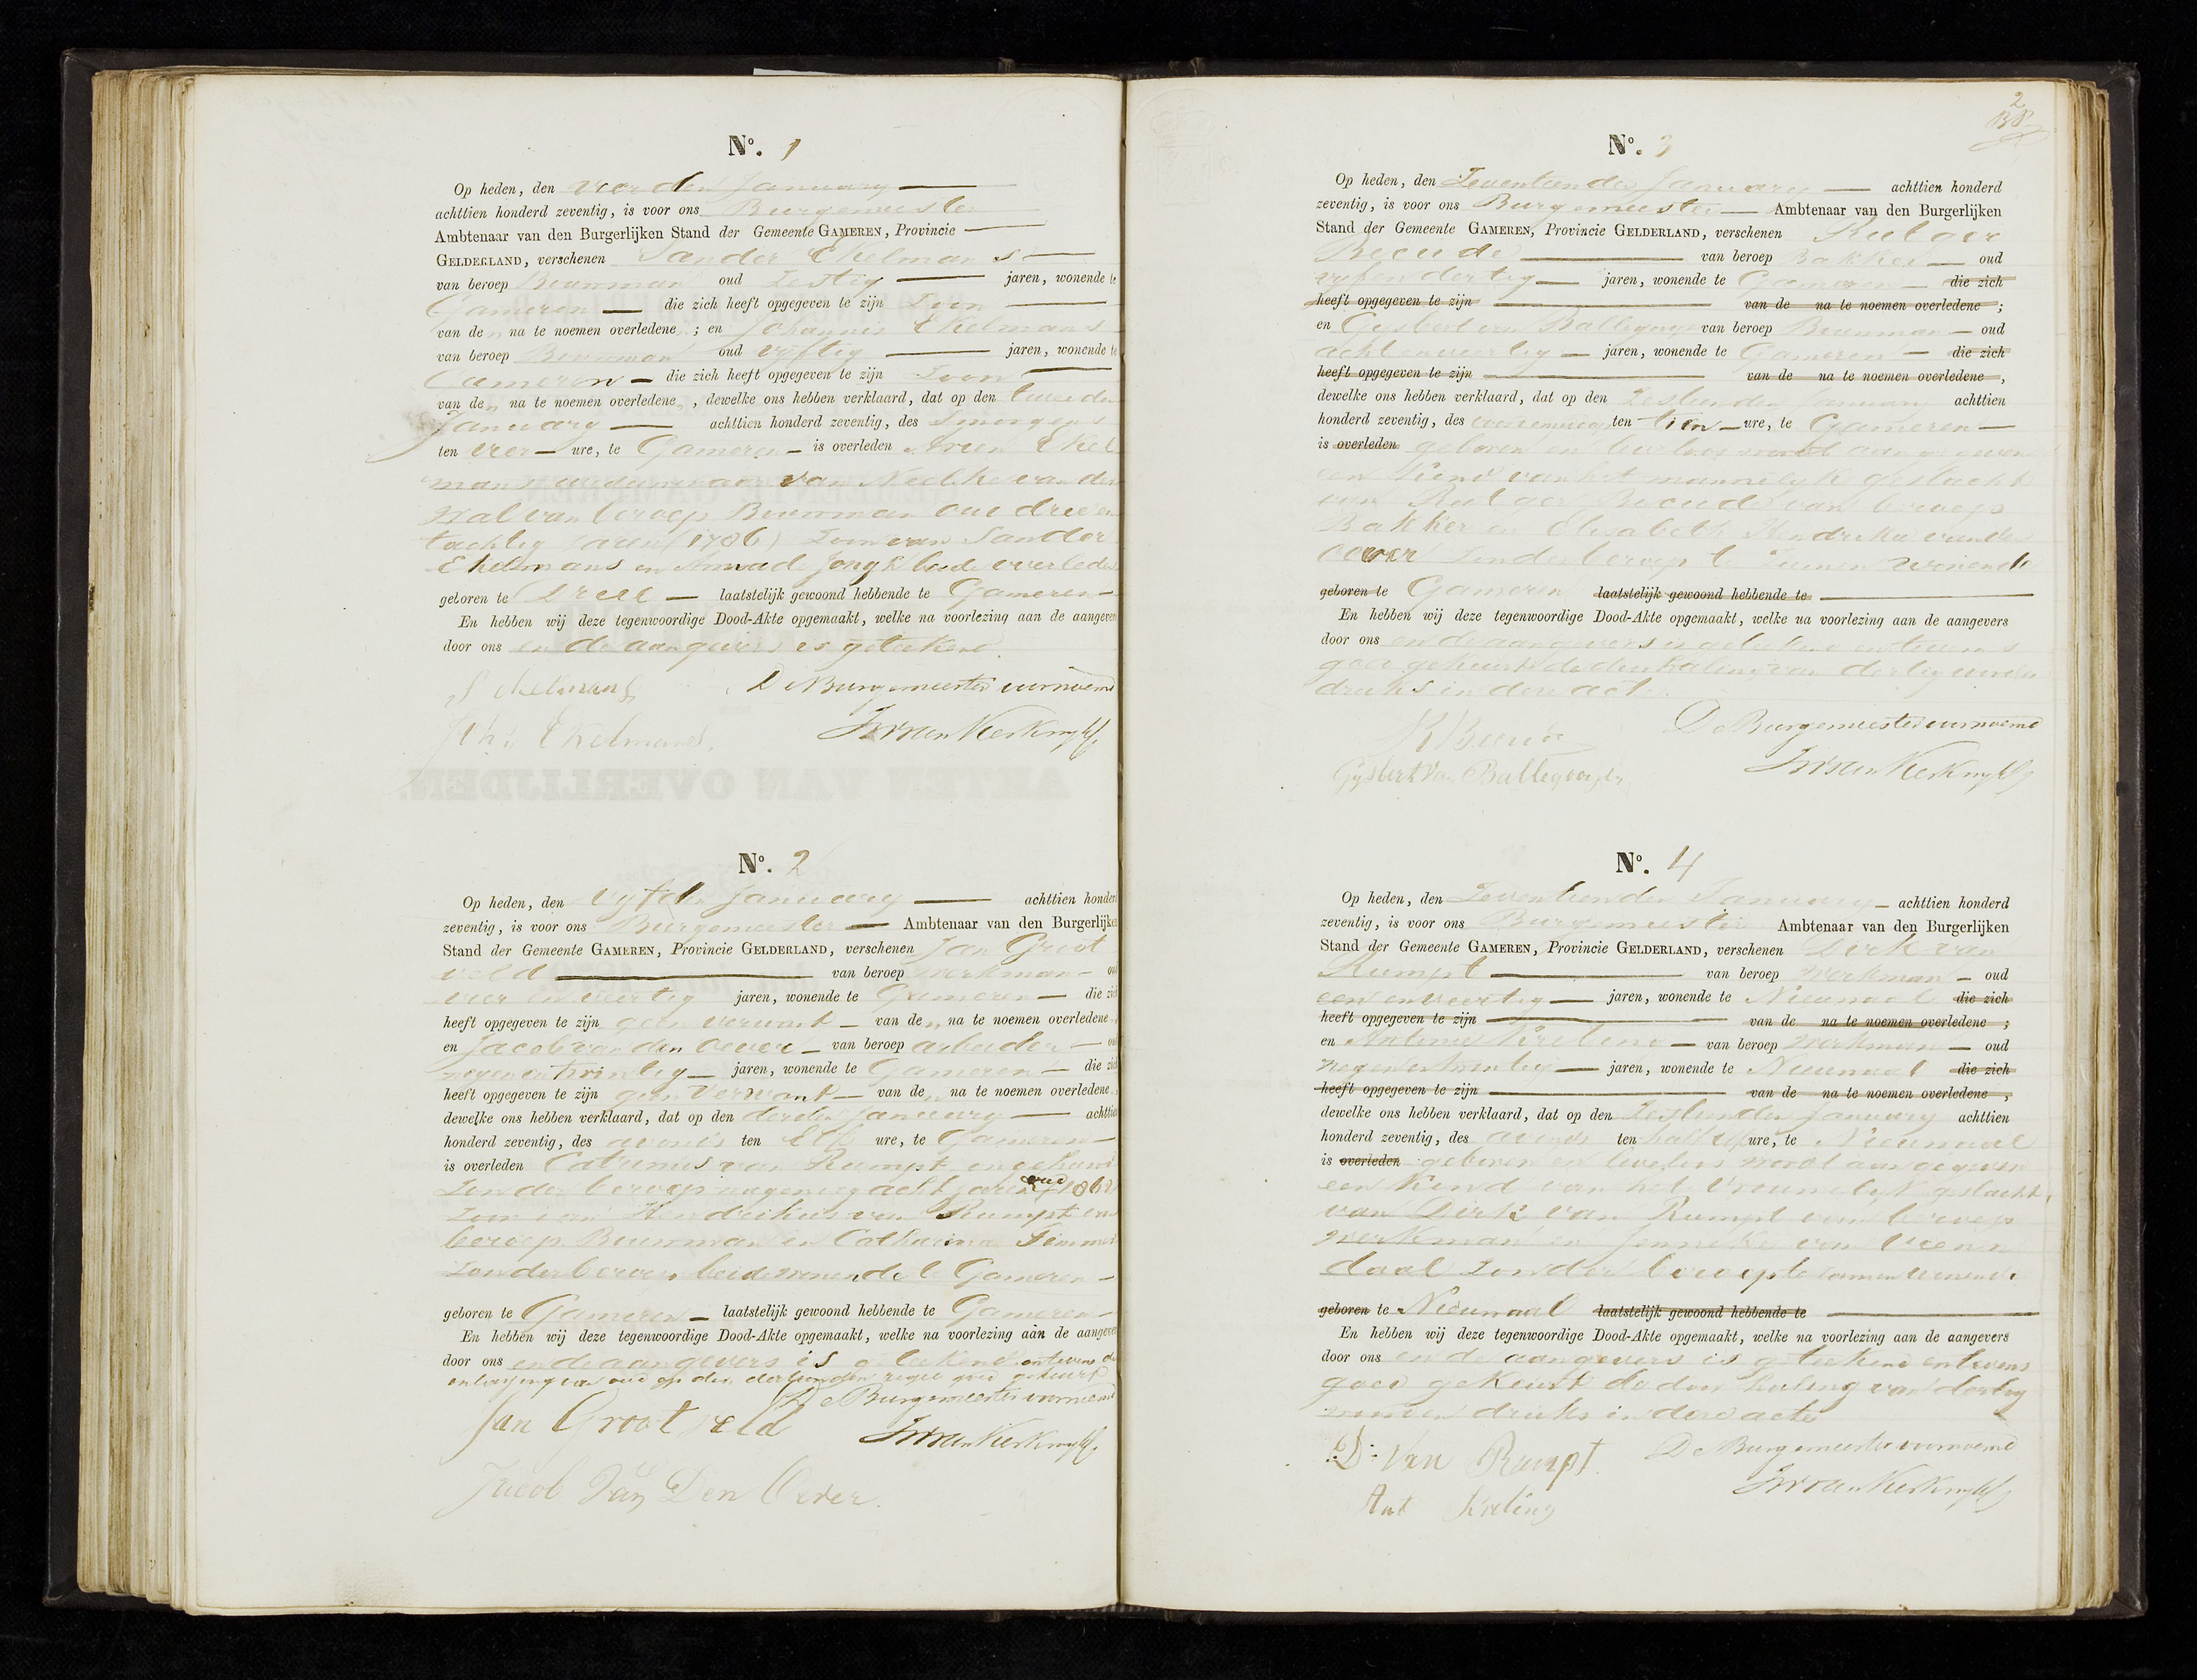 No. 1
Op heden, den vierden January
achttien honderd zeventig, is voor ons Burgemeester
Ambtenaar van den Burgerlijken Stand der Gemeente GAMEREN, Provincie
GELDERLAND, verschenen Sander Ekelmans
van beroep Bouwman oud Zestig jaren, wonende te
Gameren die zich heeft opgegeven te zijn Zoon
van den na te noemen overledene; en Johannis Ekelmans
van beroep Bouwman oud vijftig jaren, wonende te
Gameren die zich heeft opgegeven te zijn Zoon
van den na te noemen overledene, dewelke ons hebben verklaard, dat op den tweeden
January achttien honderd zeventig, des Smorgens
ten vier ure, te Gameren is overleden Arien Ekel
mans weduwnaar van Neeltke van der
Wal van beroep Bouwman oud drie en
tachtig jaren (1786) Zoon van Sander
Ekelmans en de Jongh beide overleden
geboren te Dreel laatstelijk gewoond hebbende te Gameren
En hebben wij deze tegenwoordige Dood-Akte opgemaakt, welke na voorlezing aan de aangevers
door ons en de aangevers is geteekend.
S Ekelmans De Burgemeester voornoemd
Joh: Ekelmans.
No. 2
Op heden, den vyfden January achttien honderd
zeventig, is voor ons Burgemeester Ambtenaar van den Burgerlijken
Stand der Gemeente GAMEREN, Provincie GELDERLAND, verschenen Jan Groot
veld van beroep Werkman oud
vier en veertig jaren, wonende te Gameren die zich
heeft opgegeven te zijn geen verwant van den na te noemen overledene
en Jacob van den Oever van beroep arbeider oud
negen en twintig jaren, wonende te Gameren die zich
heeft opgegeven te zijn geen Verwant van den na te noemen overledene
dewelke ons hebben verklaard, dat op den derden January achttien
honderd zeventig, des avonds ten Elf ure, te Gameren
is overleden van Rumpt ongehuwd
Zonder beroep acht jaren oud
Zoon van Hendrikus van Rumpt van
beroep Bouwman en Catharina Timmer
Zonder beroep beide wonende te Gameren
geboren te Gameren laatstelijk gewoond hebbende te Gameren
En hebben wij deze tegenwoordige Dood-Akte opgemaakt, welke na voorlezing aan de aangevers
door ons en de aangevers is geteekend en tevens de
van oud op den dertienden regel goed gekeurd
De Burgemeester voornoemd
Jan Grootveld
Jacob Van Den Oever.
2
No. 3
Op heden, den Zeventienden January achttien honderd
zeventig, is voor ons Burgemeester Ambtenaar van den Burgerlijken
Stand der Gemeente GAMEREN, Provincie GELDERLAND, verschenen Rutger
van beroep Bakker oud
vyf en dertig jaren, wonende te Gameren die zich
heeft opgegeven te zijn van de na te noemen overledene;
en Gysbert van Ballegoyen van beroep Bouwman oud
acht en veertig jaren, wonende te Gameren die zich
heeft opgegeven te zijn van de na te noemen overledene,
dewelke ons hebben verklaard, dat op den Zestienden January achttien
honderd zeventig, des voormiddags ten tien ure, te Gameren
is overleden geboren en levloos wordt aangegeven
een Kind van het mannelijk geslacht
van Rutger van beroep
Bakker en Elisabeth Hendrika van den
Oever Zonder beroep te Zamen wonende
geboren te Gameren laatstelijk gewoond hebbende te
En hebben wij deze tegenwoordige Dood-Akte opgemaakt, welke na voorlezing aan de aangevers
door ons en de aangevers is geteekend en tevens
goed gekeurd de doorhaling van dertig woorden
druks in deze acte
De Burgemeester voornoemd
Gysbert Van Ballegooyen
No. 4
Op heden, den Zeventienden January achttien honderd
zeventig, is voor ons Burgemeester Ambtenaar van den Burgerlijken
Stand der Gemeente GAMEREN, Provincie GELDERLAND, verschenen Dirk van
Rumpt van beroep Werkman oud
een en veertig jaren, wonende te Nieuwaal die zich
heeft opgegeven te zijn van de na te noemen overledene;
en Antonie Kreling van beroep Werkman oud
negen en twintig jaren, wonende te Nieuwaal die zich
heeft opgegeven te zijn van de na te noemen overledene,
dewelke ons hebben verklaard, dat op den Zestienden January achttien
honderd zeventig, des avonds ten half elf ure, te Nieuwaal
is overleden geboren en levloos wordt aangegeven
een Kind van het Vrouwelijk geslacht,
van Dirk van Rumpt van beroep
Werkman en Jenneke van Veenen
daal Zonder beroep te Zamen wonende
geboren te Nieuwaal laatstelijk gewoond hebbende te
En hebben wij deze tegenwoordige Dood-Akte opgemaakt, welke na voorlezing aan de aangevers
door ons en de aangevers is geteekend en tevens
goed gekeurd de doorhaling van dertig
woorden druks in deze acte
D: Van Rumpt. De Burgemeester voornoemd
Ant Kreling